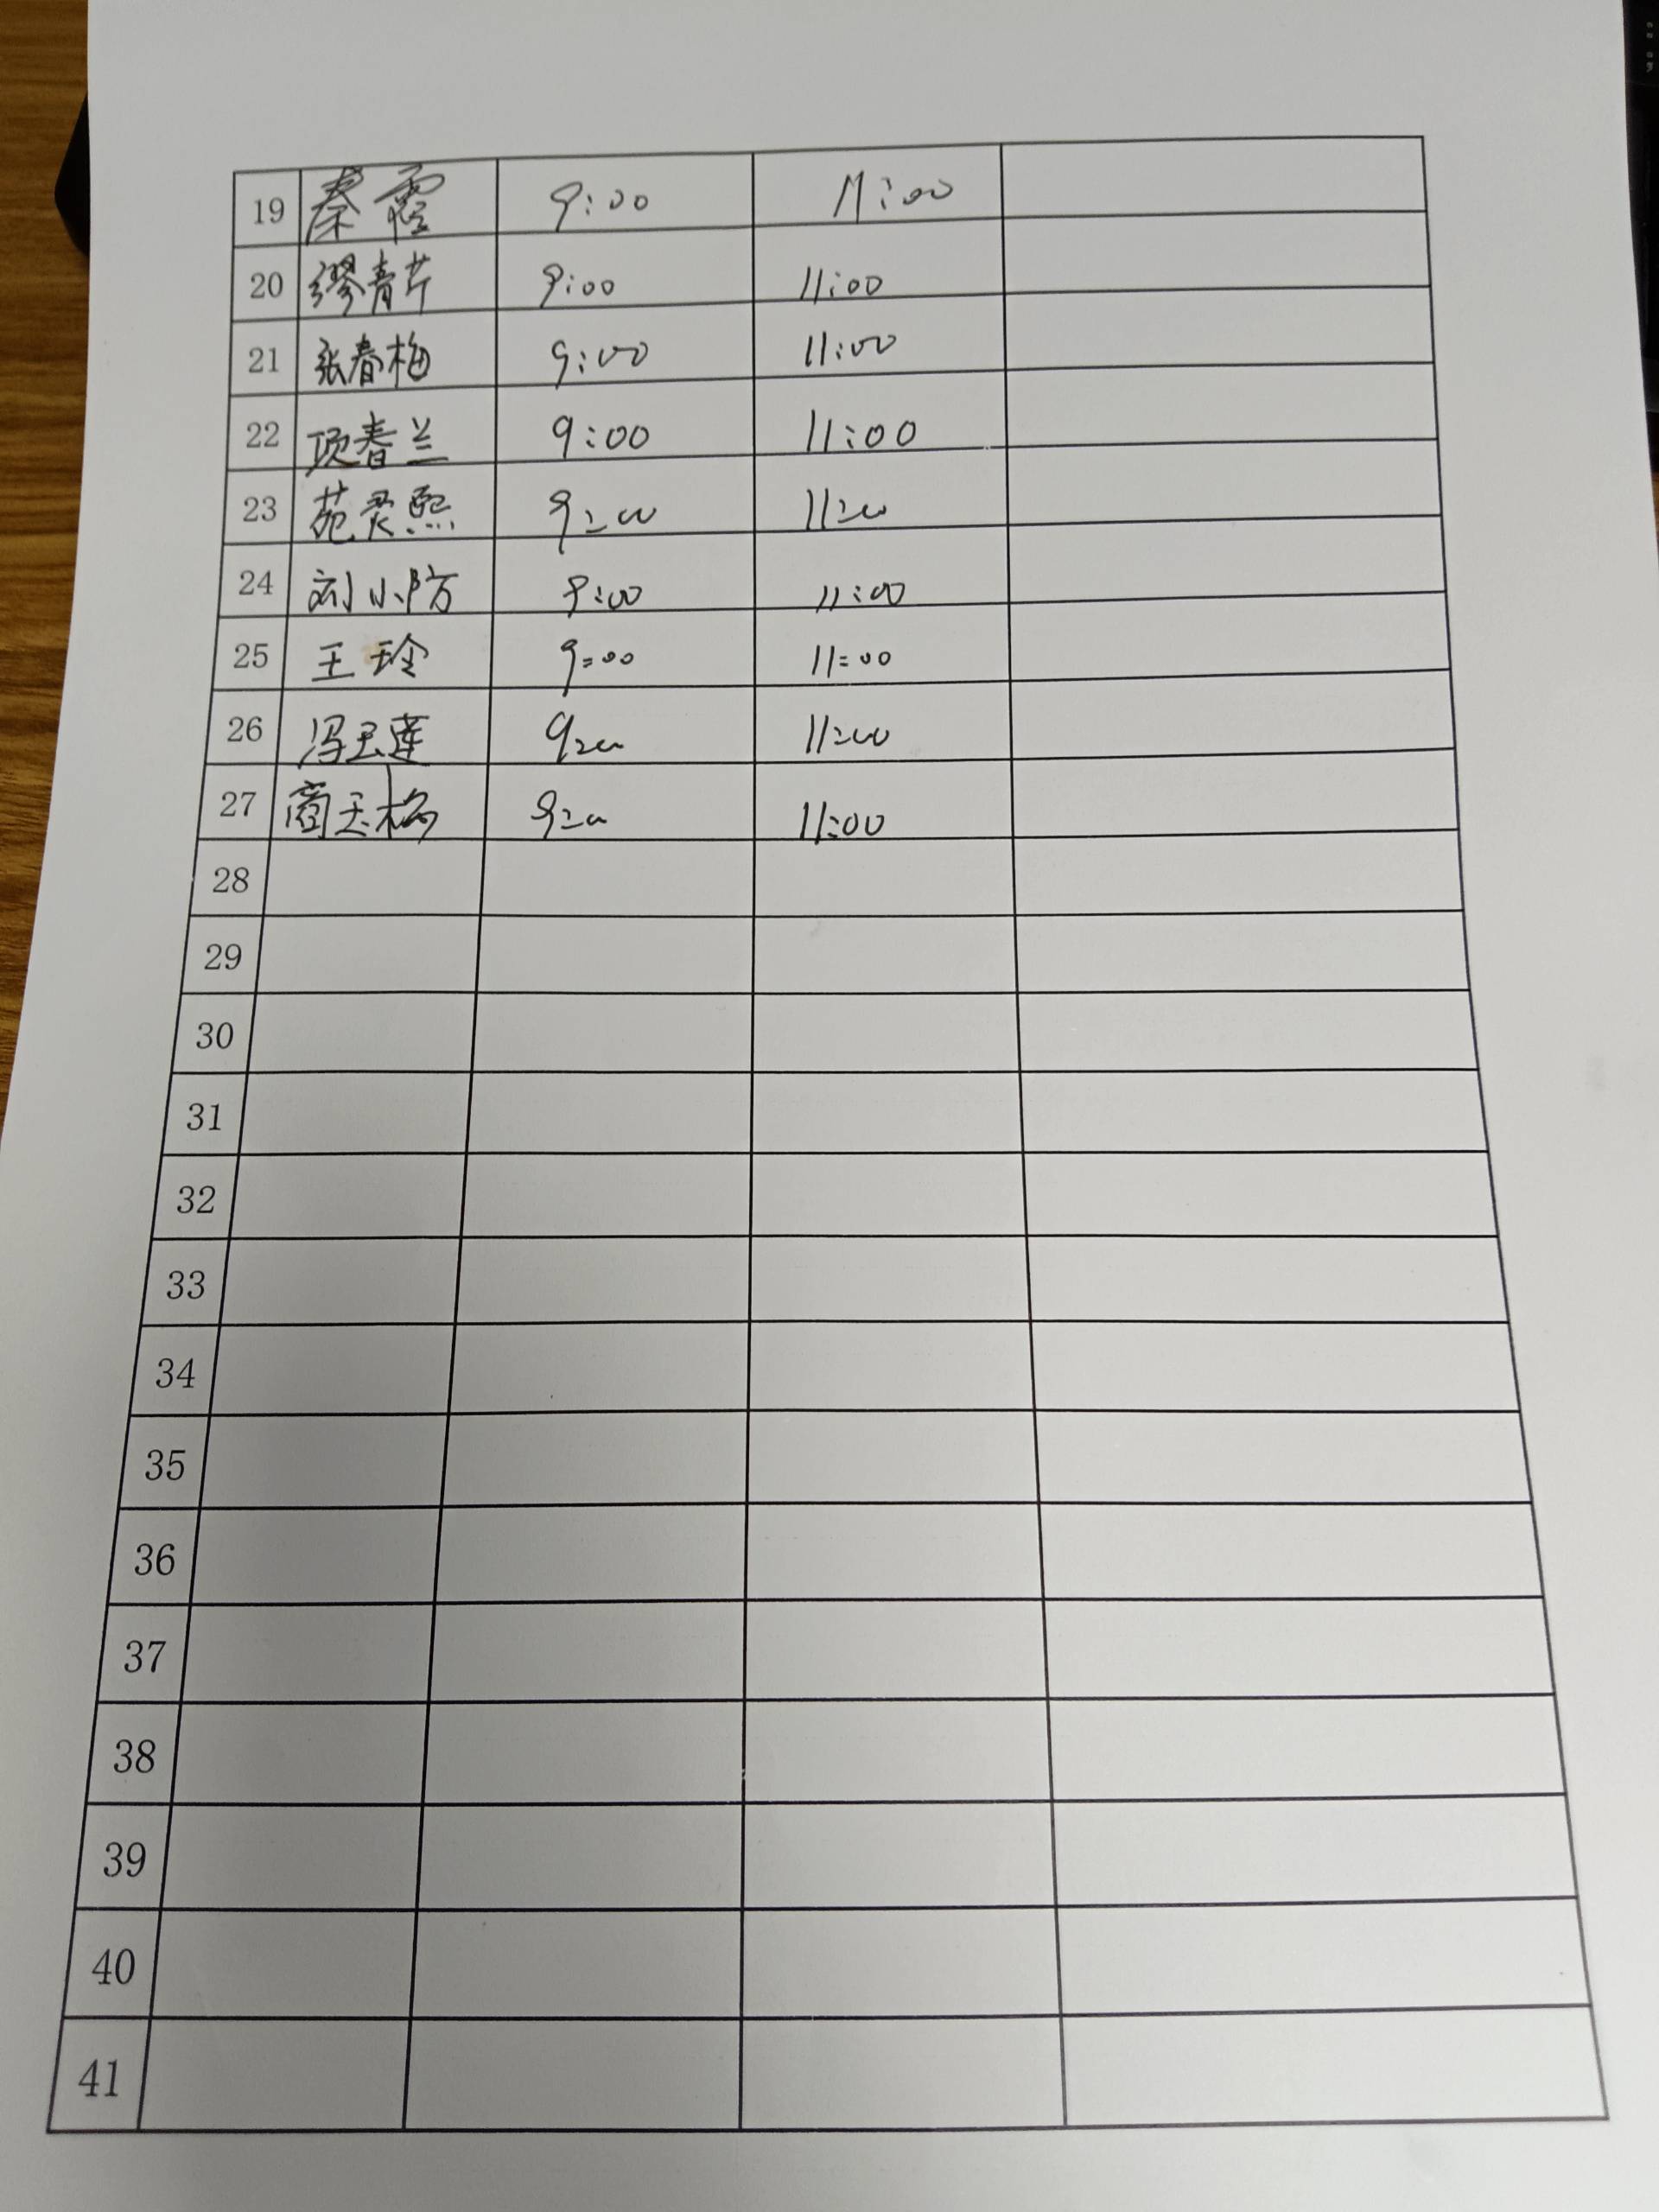 19 秦霞 9:00 11:00
20 缪青芹 9:00 11:00
21 张春梅 9:00 11:00
22 项春兰 9:00 11:00
23 苑灵熙 9:00 11:00
24 刘小防 9:00 11:00
25 王玲 9:00 11:00
26 冯玉莲 9:00 11:00
27 商玉梅 9:00 11:00
28
29
30
31
32
33
34
35
36
37
38
39
40
41